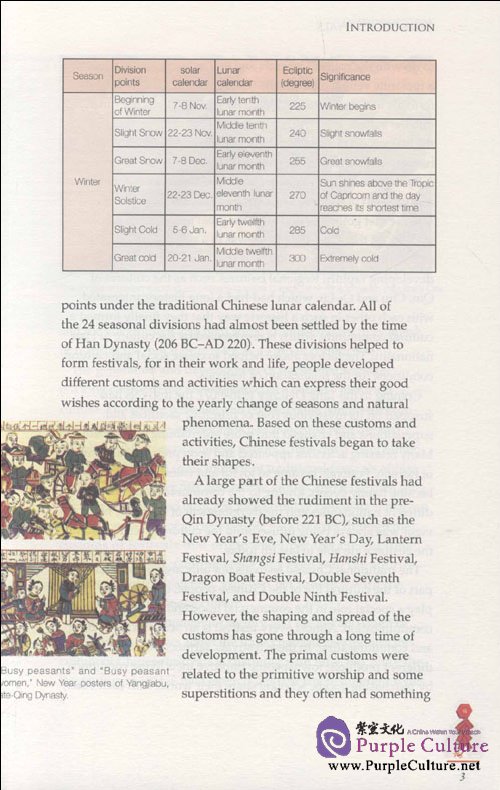 INTRODUCTION
Season Division points solar calendar Lunar calendar Ecliptic (degree) Significance
Winter
Beginning of Winter 7-8 Nov. Early tenth lunar month 225 Winter begins
Slight Snow 22-23 Nov. Middle tenth lunar month 240 Slight snowfalls
Great Snow 7-8 Dec. Early eleventh lunar month 255 Great snowfalls
Winter Solstice 22-23 Dec. Middle eleventh lunar month 270 Sun shines above the Tropic of Capricorn and the day reaches its shortest time
Slight Cold 5-6 Jan. Early twelfth lunar month 285 Cold
Great cold 20-21 Jan. Middle twelfth lunar month 300 Extremely cold
points under the traditional Chinese lunar calendar. All of
the 24 seasonal divisions had almost been settled by the time
of Han Dynasty (206 BC–AD 220). These divisions helped to
form festivals, for in their work and life, people developed
different customs and activities which can express their good
wishes according to the yearly change of seasons and natural
phenomena. Based on these customs and
activities, Chinese festivals began to take
their shapes.
A large part of the Chinese festivals had
already showed the rudiment in the pre-
Qin Dynasty (before 221 BC), such as the
New Year's Eve, New Year's Day, Lantern
Festival, Shangsi Festival, Hanshi Festival,
Dragon Boat Festival, Double Seventh
Festival, and Double Ninth Festival.
However, the shaping and spread of the
customs has gone through a long time of
development. The primal customs were
related to the primitive worship and some
superstitions and they often had something
"Busy peasants" and "Busy peasant
women," New Year posters of Yangjiabu,
late-Qing Dynasty.
紫宝文化 A China Within Your Reach
Purple Culture
www.PurpleCulture.net
3